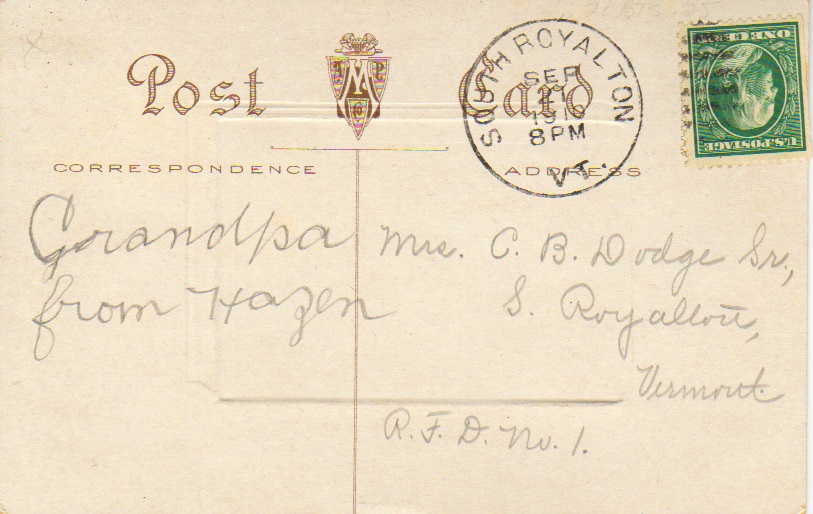 Post Card
AMP
Co
SOUTH ROYALTON
SEP
1910
8 PM
VT.
ONE CENT
U.S. POSTAGE
CORRESPONDENCE
ADDRESS
Grandpa
from Hazen
Mrs. C. B. Dodge Sr.,
S. Royalton,
Vermont
R. F. D. No. 1.